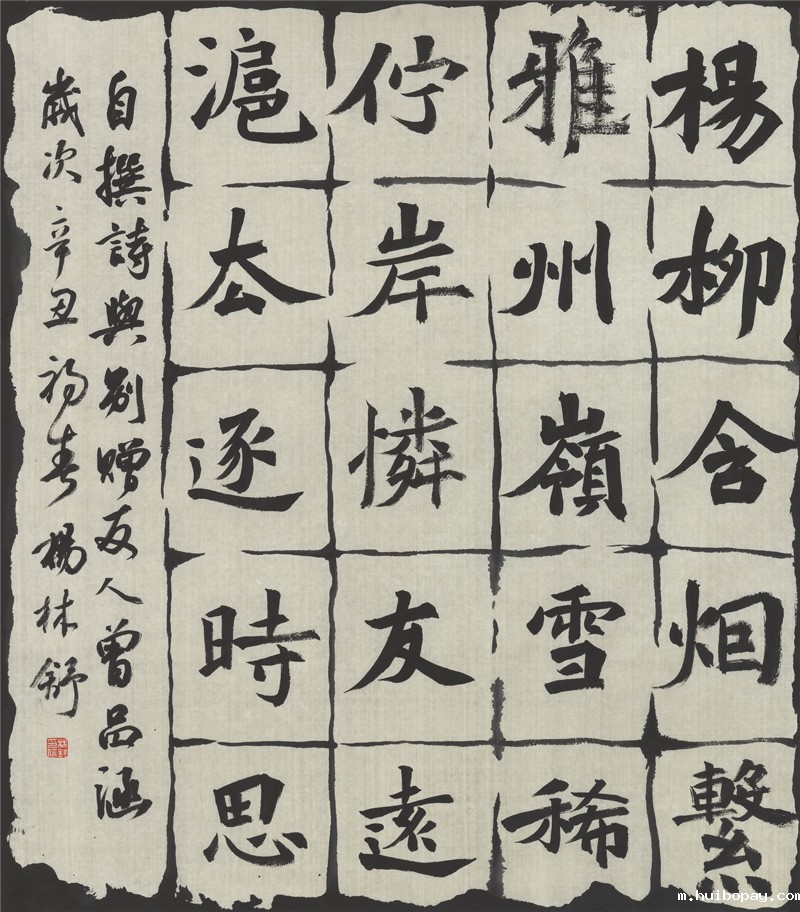 楊柳含烟繫
雅州嶺雪稀
佇岸憐友遠
滬厺逐時思
自撰詩與别贈友人曾品涵
歲次辛丑初春楊林舒
m.huibopay.com